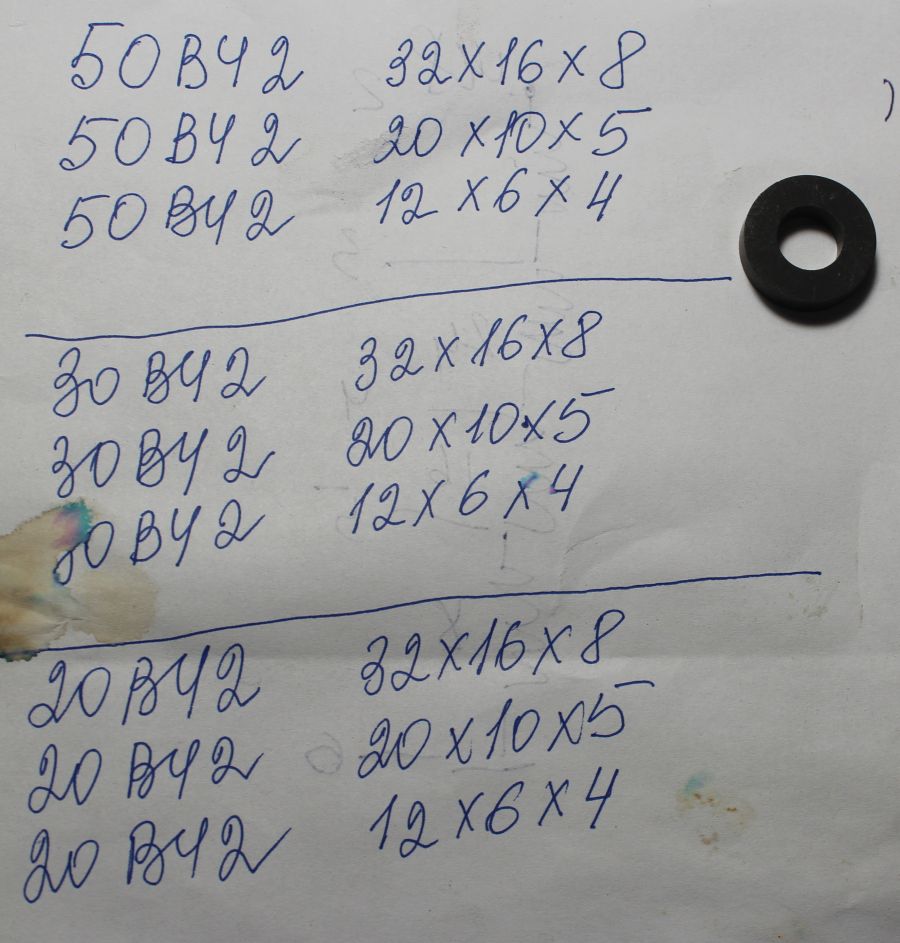 50 ВЧ 2 32×16×8
50 ВЧ 2 20×10×5
50 ВЧ 2 12×6×4
30 ВЧ 2 32×16×8
30 ВЧ 2 20×10×5
30 ВЧ 2 12×6×4
20 ВЧ 2 32×16×8
20 ВЧ 2 20×10×5
20 ВЧ 2 12×6×4